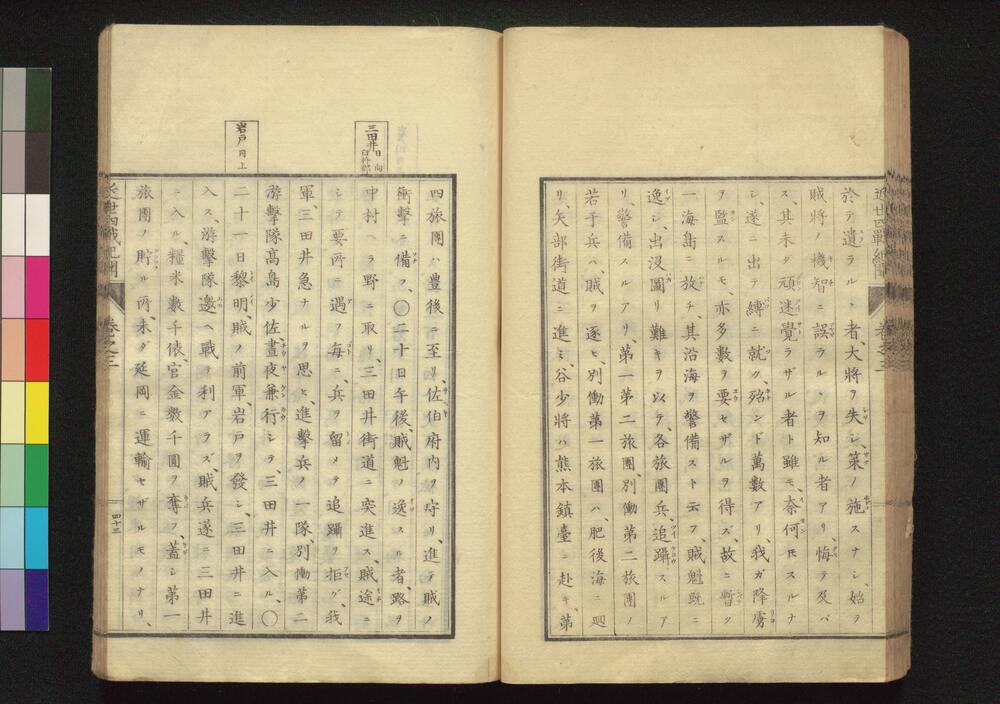 近世四戰紀聞 卷之三
於テ遺ラルヽ者、大將ヲ失シ、策ノ施スナシ、始ラ
賊將ノ機智ニ誤ラルヽヲ知ル者アリ、悔ラ及バ
ス、其未タ頑迷覺ラザル者ト雖モ、奈何トモスルナ
シ、遂ニ出テ縛ニ就ク、殆ンド萬數アリ、我ガ降虜
ヲ監スルモ、亦多數ヲ要セザルヲ得ズ、故ニ暫ク
一海島ニ放チ、其沿海ヲ警備スト云フ、賊魁既ニ
逸シ、出没圖リ難キヲ以テ、各旅團兵追躡スルア
リ、警備スルアリ、第一第二旅團、別働第二旅團ノ
若干兵ハ、賊ヲ逐ヒ、別働第一旅團ハ、肥後海ニ廻
リ、矢部街道ニ進ミ、谷少將ハ熊本鎮臺ニ赴キ、第
四旅團ハ豊後ニ至リ、佐伯府内ヲ守リ、進テ賊ノ
衝擊ニ備フ、〇二十日午後、賊魁ノ逸スル者、路ヲ
三田井 日向臼杵郡
中村ヘラ野ニ取リ、三田井街道ニ突進ス、賊途ニ
シテ要所ニ遇フ毎ニ、兵ヲ留メテ追躡ヲ拒グ、我
軍、三田井急ナルヲ思ヒ、進擊兵ノ一隊、別働第二
游擊隊高島少佐、晝夜兼行シラ、三田井ニ入ル、〇
岩戸 同上
二十一日黎明、賊ノ前軍岩戸ヲ發シ、三田井ニ進
入ス、游擊隊邀ヘ戰ヲ利アラズ、賊兵遂ニ三田井
ニ入ル、糧米數千俵、官金數千圓ヲ奪フ、蓋シ第一
旅團ノ貯ル所、未ダ延岡ニ運輸セザルモノナリ、
近世四戰紀聞 卷之三
四十三